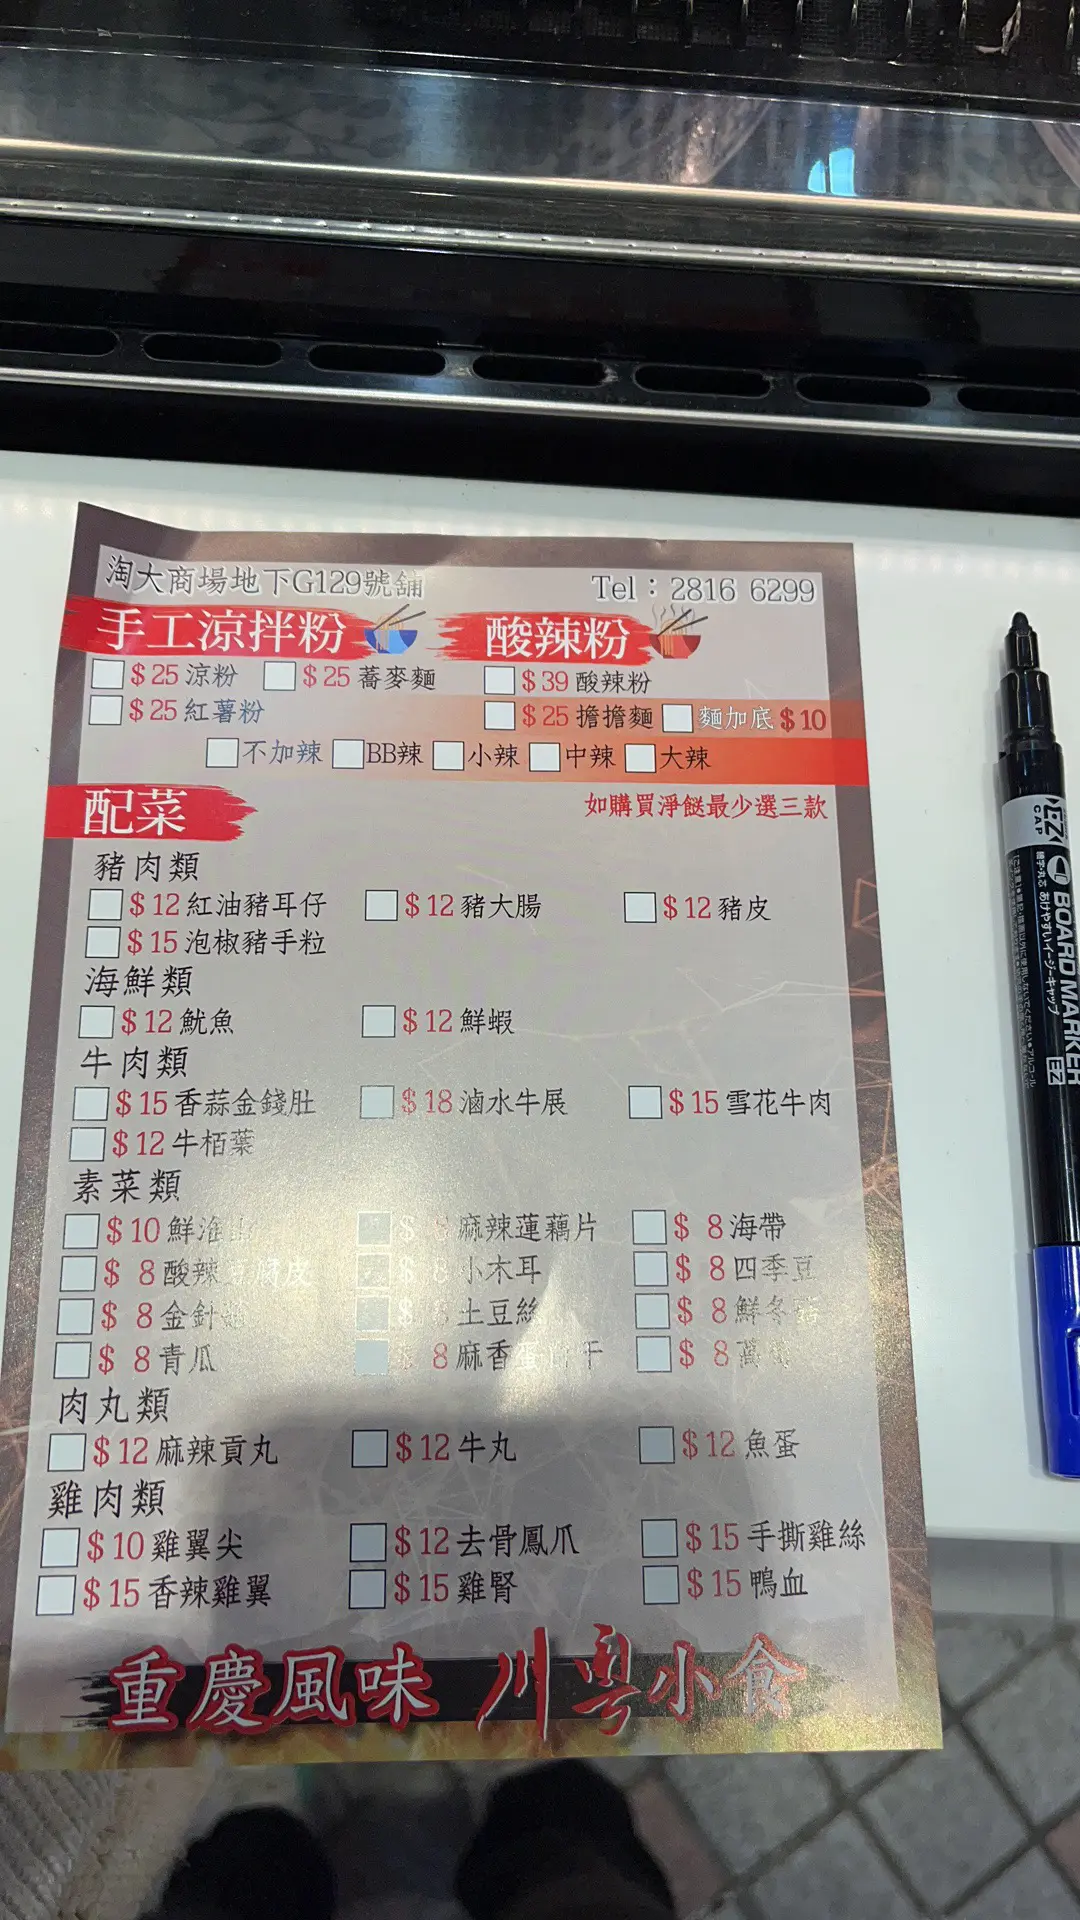 淘大商場地下G129號舖 Tel：2816 6299
手工涼拌粉 酸辣粉
$25 涼粉 $25 蕎麥麵 $39 酸辣粉
$25 紅薯粉 $25 擔擔麵 麵加底 $10
不加辣 BB辣 小辣 中辣 大辣
配菜 如購買淨餸最少選三款
豬肉類
$12 紅油豬耳仔 $12 豬大腸 $12 豬皮
$15 泡椒豬手粒
海鮮類
$12 魷魚 $12 鮮蝦
牛肉類
$15 香蒜金錢肚 $18 滷水牛展 $15 雪花牛肉
$12 牛栢葉
素菜類
$10 鮮淮 麻辣蓮藕片 $ 8 海帶
$ 8 酸辣 腐皮 $ 8 小木耳 $ 8 四季豆
$ 8 金針 $ 8 土豆絲 $ 8 鮮冬菇
$ 8 青瓜 $ 8 麻香蛋白干 $ 8
肉丸類
$12 麻辣貢丸 $12 牛丸 $12 魚蛋
雞肉類
$10 雞翼尖 $12 去骨鳳爪 $15 手撕雞絲
$15 香辣雞翼 $15 雞腎 $15 鴨血
重慶風味 川粵小食
EZ CAP
BOARD MARKER EZ
あけやすいイージーキャップ